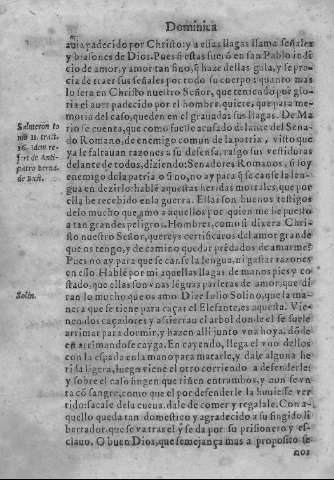 Dominica
auia padecido por Christo: y a ellas llagas llama señales
y blasones de Dios. Pues si estas fueron en san Pablo indi
cio de amor, y amor tan fino, q̃ haze dellas gala, y se pre
cia de traer sus señales por todo su cuerpo: quanto mas
lo sera en Christo nuestro Señor, que teniendo por glo
ria el auer padecido por el hombre, quiere, que para me
moria del caso, queden en el grauadas sus llagas. De Ma
rio se cuenta, que como fuesse acusado delante del Sena
do Romano, de enemigo comun de la patria, visto que
ya le faltauan razones a su defensa, rasgò sus vestiduras
delante de todos, diziendo: Senadores Romanos, si soy
enemigo de la patria o si no, no ay para q̃ se canse la len
gua en dezirlo: hable aquestas heridas mortales, que por
ella he recebido en la guerra. Ellas son buenos testigos
de lo mucho que amo a aquellos por quien me he puesto
a tan grandes peligros. Hombres, como si dixera Chris
to nuestro Señor, quereys certificaros del amor grande
que os tengo, y de camino quedar prẽdados de amarme?
Pues no ay para que se canse la lengua, ni gastar razones
en esso. Hable por mi aquellas llagas de manos pies y co
stado, que ellas son vnas lenguas parleras de amor, que di
ran lo mucho que os amo. Dize Iulio Solino, que la ma
nera que se tiene para caçar el Elefante, es aquesta. Vie-
nen dos caçadores y assierran el arbol donde el se suele
arrimar para dormir, y hazen alli junto vna hoya, dõde
en arrimandose cayga. En cayendo, llega el vno dellos
con la espada en la mano para matarle, y dale alguna he
rida ligera, luego viene el otro corriendo a defenderle:
y sobre el caso fingen que riñen entrambos, y aun se vn
ta cõ sangre, como que el por defenderle la huuiesse ver
tido: sacale de la cueua, dale de comer y regalale. Con a-
quello queda tan domestico y agradecido a su fingido li
bertador, que se va tras el y se da por su prisionero y es-
clauo. O buen Dios, que semejança mas a proposito se
nos
Salmeron to
mo 11. tract.
16. idem re-
fert de Anti-
patro
Solin.